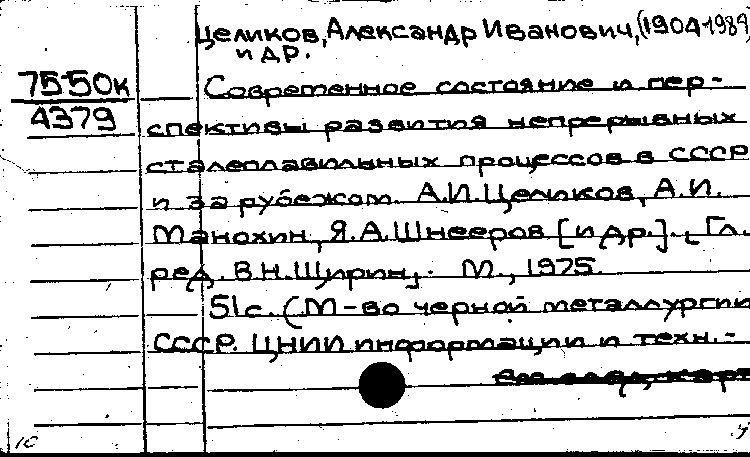 Целиков, Александр Иванович, (1904-1984)
и др.
7550к
4379
Современное состояние и пер-
спективы развития непрерывных
сталеплавильных процессов в СССР
и за рубежом. А.И.Целиков, А.И.
Манохин, Я.А.Шнееров [и др.]., Гл.
ред. В.Н.Ширин,. М., 1975.
51с. (М-во черной металлургии
СССР. ЦНИИ информации и техн.-
10